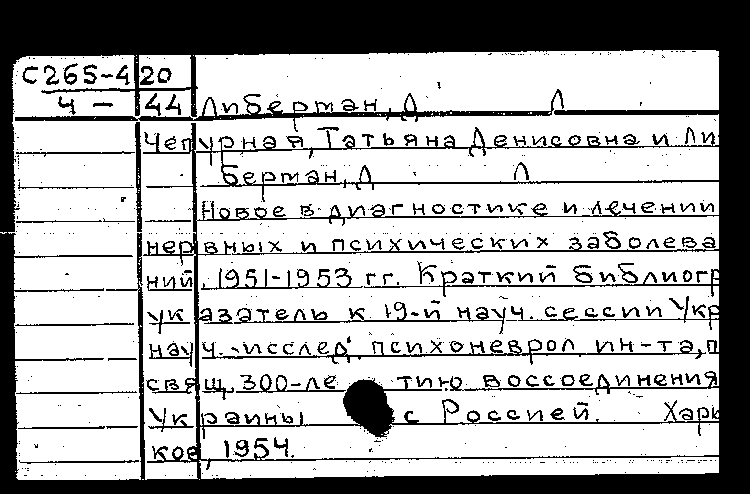 С265-4 20
4 - 44 Либерман, Л Л
Чепурная, Татьяна Денисовна и Ли
берман, Л Л
Новое в диагностике и лечении
нервных и психических заболева
ний. 1951-1953 гг. Краткий библиогр
указатель к 19-й науч. сессии Укр
науч.-исслед. психоневрол. ин-та, п
свящ. 300-летию воссоединения
Украины с Россией. Харь
ков, 1954.